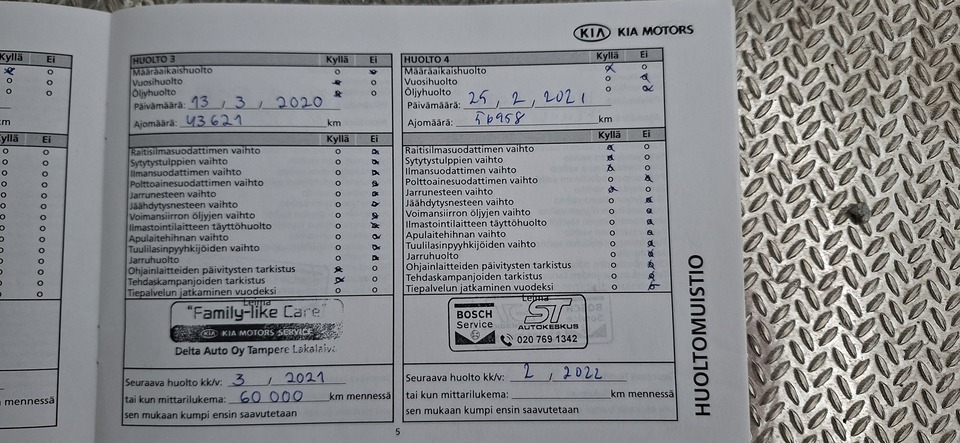 Kyllä Ei
km
Kyllä Ei
mennessä
KIA KIA MOTORS
HUOLTO 3 Kyllä Ei
Määräaikaishuolto
Vuosihuolto
Öljyhuolto
Päivämäärä: 13 , 3 , 2020
Ajomäärä: 43621 km
Kyllä Ei
Raitisilmasuodattimen vaihto
Sytytystulppien vaihto
Ilmansuodattimen vaihto
Polttoainesuodattimen vaihto
Jarrunesteen vaihto
Jäähdytysnesteen vaihto
Voimansiirron öljyjen vaihto
Ilmastointilaitteen täyttöhuolto
Apulaitehihnan vaihto
Tuulilasinpyyhkijöiden vaihto
Jarruhuolto
Ohjainlaitteiden päivitysten tarkistus
Tehdaskampanjoiden tarkistus
Tiepalvelun jatkaminen vuodeksi
Leima
"Family-like Care"
KIA KIA MOTORS SERVICE
Delta Auto Oy Tampere Lakalaiva
Seuraava huolto kk/v: 3 , 2021
tai kun mittarilukema: 60 000 km mennessä
sen mukaan kumpi ensin saavutetaan
HUOLTO 4 Kyllä Ei
Määräaikaishuolto
Vuosihuolto
Öljyhuolto
Päivämäärä: 25 , 2 , 2021
Ajomäärä: 56958 km
Kyllä Ei
Raitisilmasuodattimen vaihto
Sytytystulppien vaihto
Ilmansuodattimen vaihto
Polttoainesuodattimen vaihto
Jarrunesteen vaihto
Jäähdytysnesteen vaihto
Voimansiirron öljyjen vaihto
Ilmastointilaitteen täyttöhuolto
Apulaitehihnan vaihto
Tuulilasinpyyhkijöiden vaihto
Jarruhuolto
Ohjainlaitteiden päivitysten tarkistus
Tehdaskampanjoiden tarkistus
Tiepalvelun jatkaminen vuodeksi
Leima
BOSCH
Service
ST
AUTOKESKUS
020 769 1342
Seuraava huolto kk/v: 2 , 2022
tai kun mittarilukema: km mennessä
sen mukaan kumpi ensin saavutetaan
HUOLTOMUISTIO
5